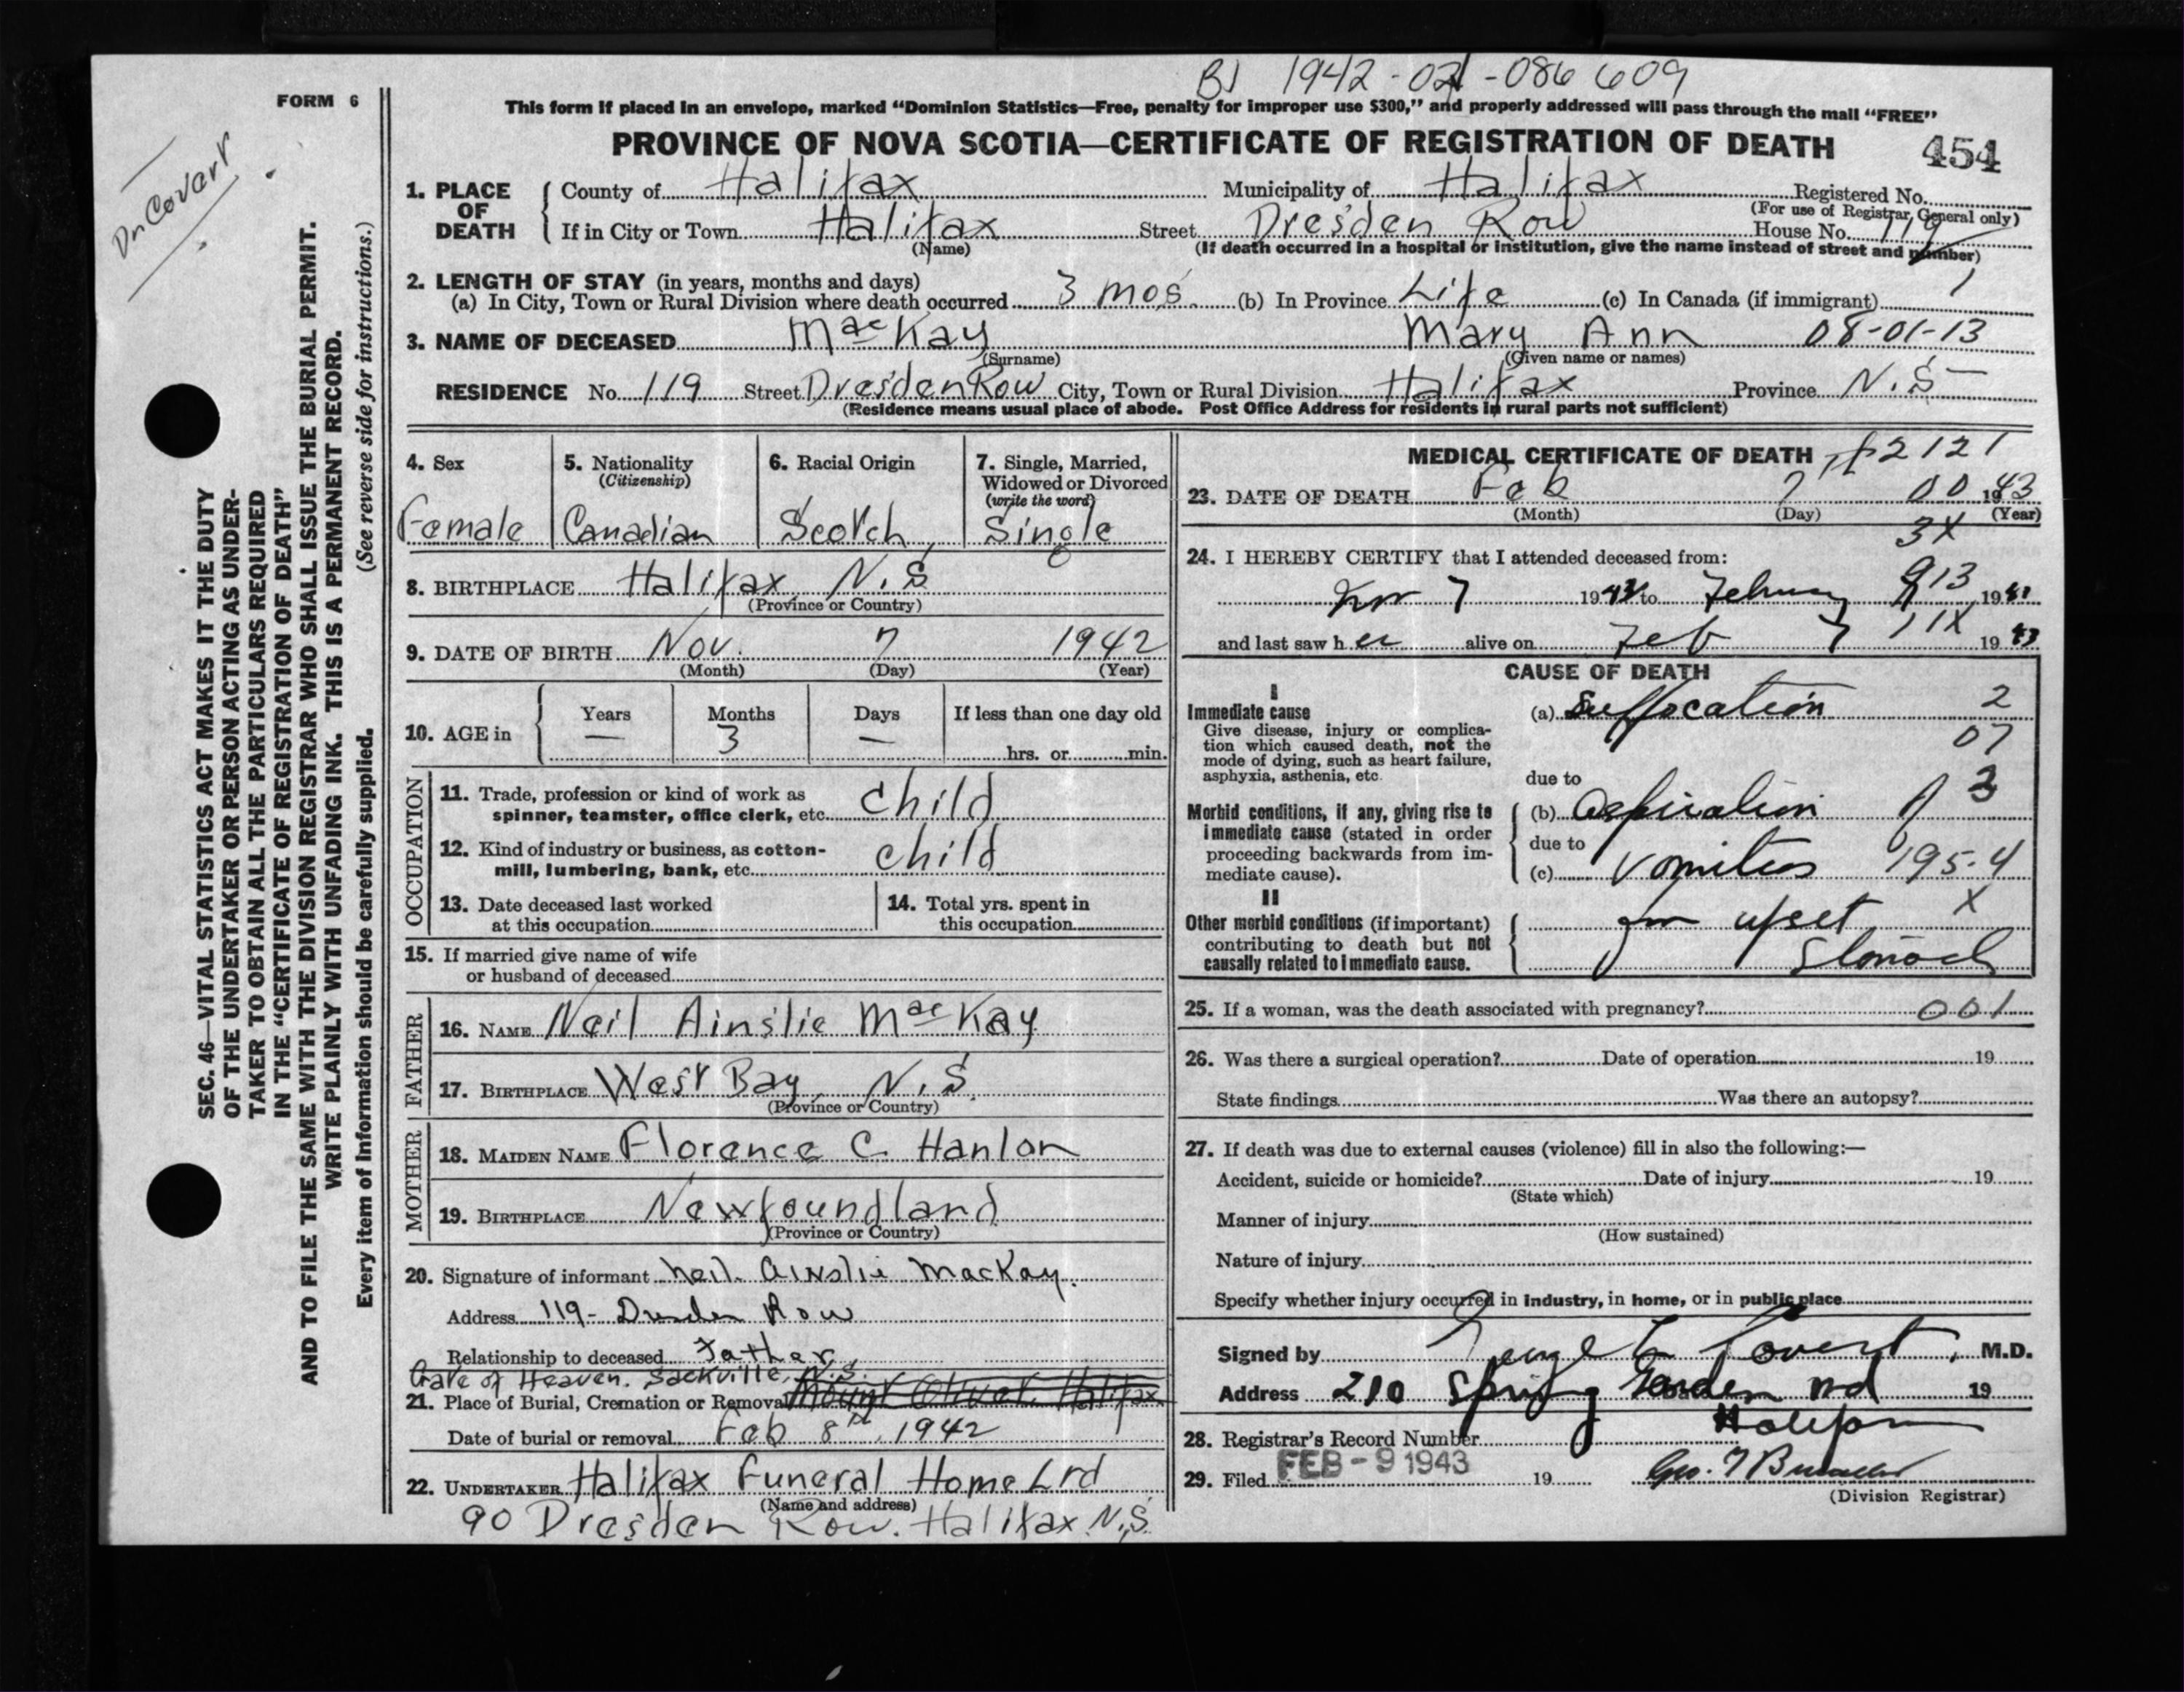 BJ 1942-02-086609
FORM 6
This form if placed in an envelope, marked “Dominion Statistics—Free, penalty for improper use $300,” and properly addressed will pass through the mail “FREE”
PROVINCE OF NOVA SCOTIA—CERTIFICATE OF REGISTRATION OF DEATH 454
1. PLACE OF DEATH
County of Halifax Municipality of Halifax Registered No.
(For use of Registrar General only)
If in City or Town Halifax Street Dresden Row House No. 119
(Name) (If death occurred in a hospital or institution, give the name instead of street and number)
2. LENGTH OF STAY (in years, months and days)
(a) In City, Town or Rural Division where death occurred 3 mos. (b) In Province Life (c) In Canada (if immigrant) 1
3. NAME OF DECEASED MacKay Mary Ann 08-01-13
(Surname) (Given name or names)
RESIDENCE No. 119 Street Dresden Row City, Town or Rural Division Halifax Province N.S.
(Residence means usual place of abode. Post Office Address for residents in rural parts not sufficient)
4. Sex
Female
5. Nationality
(Citizenship)
Canadian
6. Racial Origin
Scotch
7. Single, Married,
Widowed or Divorced
(write the word)
Single
8. BIRTHPLACE Halifax, N.S
(Province or Country)
9. DATE OF BIRTH Nov. 7 1942
(Month) (Day) (Year)
10. AGE in
Years Months Days If less than one day old
— 3 — hrs. or min.
OCCUPATION
11. Trade, profession or kind of work as
spinner, teamster, office clerk, etc. child
12. Kind of industry or business, as cotton-
mill, lumbering, bank, etc. child
13. Date deceased last worked
at this occupation
14. Total yrs. spent in
this occupation
15. If married give name of wife
or husband of deceased
FATHER
16. NAME Neil Ainslie MacKay
17. BIRTHPLACE West Bay, N.S.
(Province or Country)
MOTHER
18. MAIDEN NAME Florence C. Hanlon
19. BIRTHPLACE Newfoundland
(Province or Country)
20. Signature of informant Neil. Ainslie MacKay.
Address 119- Dresden Row
Relationship to deceased Father
Gate of Heaven. Sackville, N.S.
21. Place of Burial, Cremation or Removal Mount Olivet Halifax
Date of burial or removal Feb 8th, 1942
22. UNDERTAKER Halifax Funeral Home Ltd
(Name and address)
90 Dresden Row. Halifax N.S.
MEDICAL CERTIFICATE OF DEATH 2121
23. DATE OF DEATH Feb 7 00 1943
(Month) (Day) (Year)
3X
24. I HEREBY CERTIFY that I attended deceased from:
Nov 7 1942 to February 913 19
and last saw her alive on Feb 7 11X 1943
CAUSE OF DEATH
I
Immediate cause
Give disease, injury or complica-
tion which caused death, not the
mode of dying, such as heart failure,
asphyxia, asthenia, etc.
(a) Suffocation 2
07
due to
Morbid conditions, if any, giving rise to
immediate cause (stated in order
proceeding backwards from im-
mediate cause).
(b) Aspiration of 3
due to
(c) Vomitus 195-4
II
Other morbid conditions (if important)
contributing to death but not
causally related to immediate cause.
from upset X
Stomach
25. If a woman, was the death associated with pregnancy? 001
26. Was there a surgical operation? Date of operation 19
State findings Was there an autopsy?
27. If death was due to external causes (violence) fill in also the following:—
Accident, suicide or homicide? Date of injury 19
(State which)
Manner of injury
(How sustained)
Nature of injury
Specify whether injury occurred in industry, in home, or in public place
Signed by George Covert, M.D.
Address 210 Spring Garden Rd 19
Halifax
28. Registrar's Record Number
29. Filed FEB - 9 1943 19
(Division Registrar)
Dr Covert
SEC. 46—VITAL STATISTICS ACT MAKES IT THE DUTY
OF THE UNDERTAKER OR PERSON ACTING AS UNDER-
TAKER TO OBTAIN ALL THE PARTICULARS REQUIRED
IN THE “CERTIFICATE OF REGISTRATION OF DEATH”
AND TO FILE THE SAME WITH THE DIVISION REGISTRAR WHO SHALL ISSUE THE BURIAL PERMIT.
WRITE PLAINLY WITH UNFADING INK. THIS IS A PERMANENT RECORD.
Every item of information should be carefully supplied. (See reverse side for instructions.)